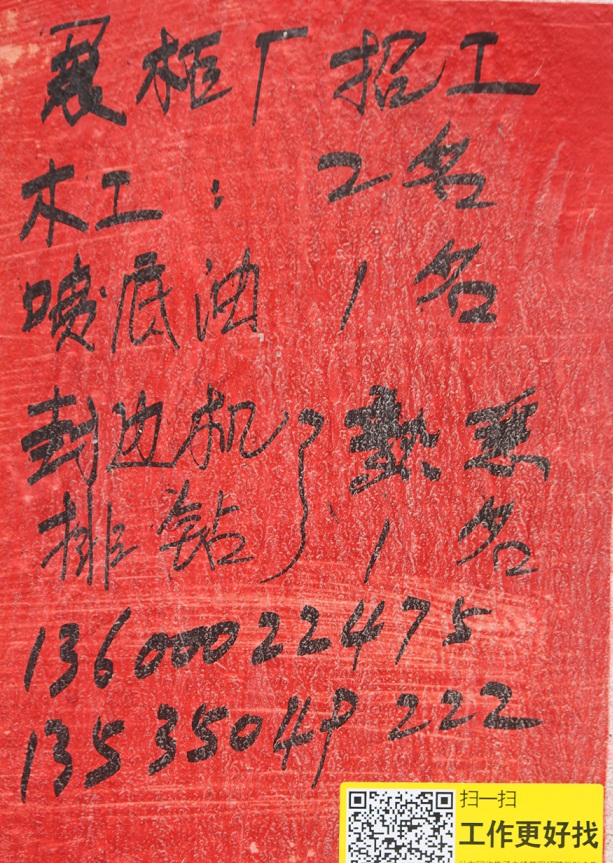 展柜厂招工
木工: 2名
喷底油 1名
封边机 熟悉
排钻 1名
13600022475
13535049222
扫一扫
工作更好找